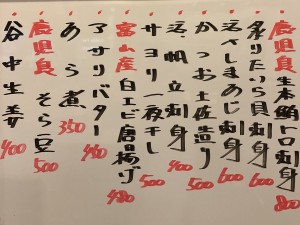 鹿児島生本鮪トロ刺身 800
炙りたいら貝刺身 600
活〆しまあじ刺身 600
かつお土佐造り 500
活帆立刺身 400
サヨリ一夜干し 500
富山産白エビ唐揚げ 480
アサリバター 450
あら煮 350
鹿児島そら豆 500
谷中生姜 400